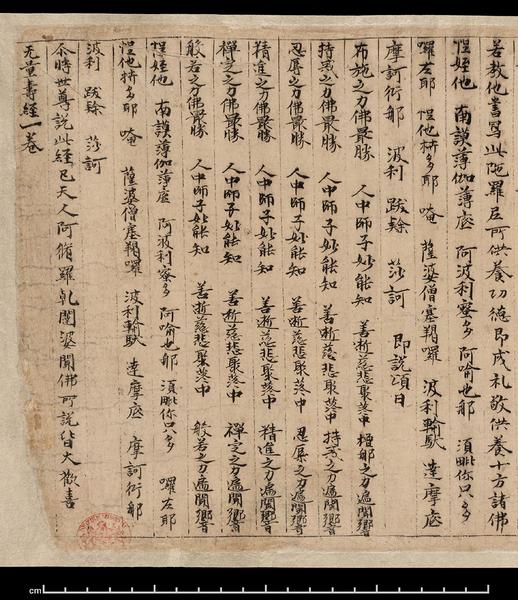 若教他書寫此陀羅尼所供養功德即成礼敬供養十方諸佛
怛姪他 南謨薄伽薄底 阿波利蜜多 阿喻也那 須毗你只多
囉左耶 怛他揭多耶 唵 薩婆僧塞羯囉 波利輸馱 達摩底
摩訶衍那 波利 跋賖 莎訶 即說頌曰
布施之力佛最勝 人中師子妙能知 善逝慈悲聚落中 檀那之力遍聞響
持戒之力佛最勝 人中師子妙能知 善逝慈悲聚落中 持戒之力遍聞響
忍辱之力佛最勝 人中師子妙能知 善逝慈悲聚落中 忍辱之力遍聞響
精進之力佛最勝 人中師子妙能知 善逝慈悲聚落中 精進之力遍聞響
禪定之力佛最勝 人中師子妙能知 善逝慈悲聚落中 禪定之力遍聞響
般若之力佛最勝 人中師子妙能知 善逝慈悲聚落中 般若之力遍聞響
怛姪他 南謨薄伽薄底 阿波利蜜多 阿喻也那 須毗你只多 囉左耶
怛他揭多耶 唵 薩婆僧塞羯囉 波利輸馱 達摩底 摩訶衍那
波利 跋賖 莎訶
尒時世尊說此經已天人阿脩羅乹闥婆聞佛所說皆大歡喜
无量壽經一卷
cm